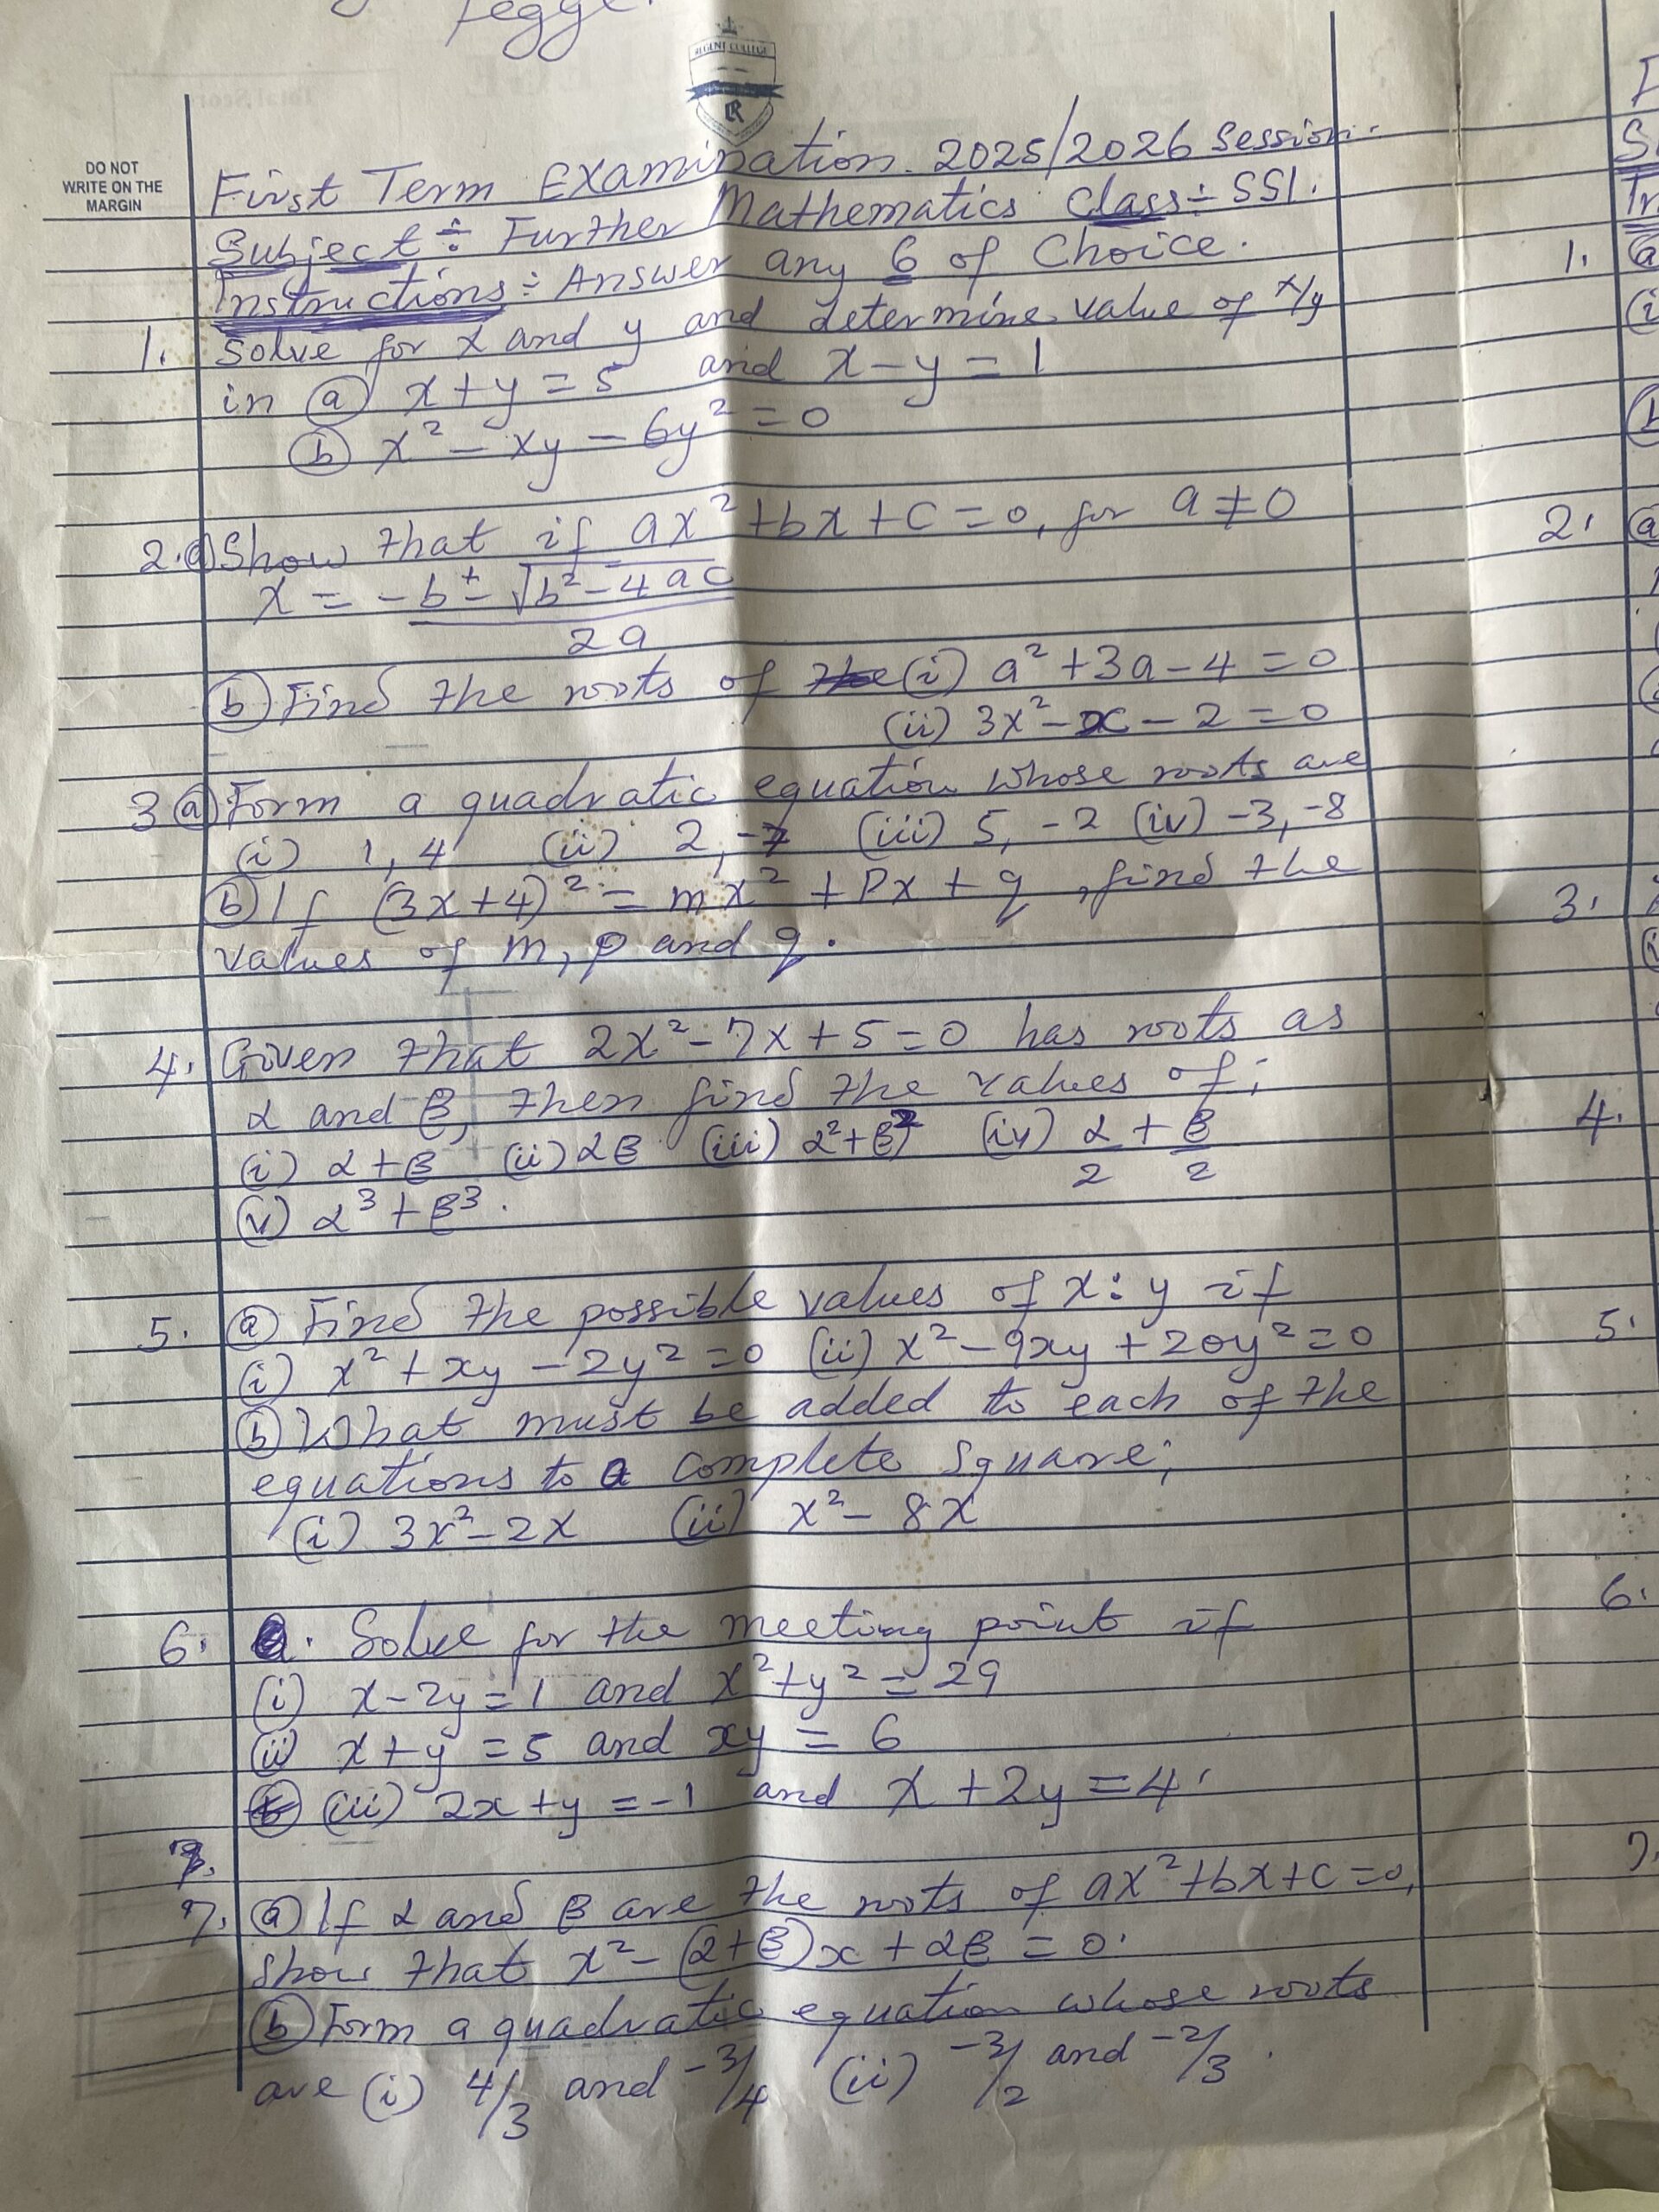 REGENT COLLEGE
R
DO NOT
WRITE ON THE
MARGIN
First Term Examination. 2025/2026 Session.
Subject ÷ Further Mathematics Class ÷ SS1.
Instructions ÷ Answer any 6 of Choice.
1. Solve for x and y and determine value of x/y
in (a) x + y = 5 and x - y = 1
(b) x² - xy - 6y² = 0
2. (a) Show that if ax² + bx + c = 0, for a ≠ 0
x = -b ± √b² - 4ac
2a
(b) Find the roots of the (i) a² + 3a - 4 = 0
(ii) 3x² - x - 2 = 0
3 (a) Form a quadratic equation whose roots are
(i) 1, 4 (ii) 2, -7 (iii) 5, -2 (iv) -3, -8
(b) If (3x + 4)² = mx² + Px + q, find the
values of m, p and q.
4. Given that 2x² - 7x + 5 = 0 has roots as
α and β, then find the values of;
(i) α + β (ii) αβ (iii) α² + β² (iv) α/2 + β/2
(v) α³ + β³.
5. (a) Find the possible values of x : y if
(i) x² + xy - 2y² = 0 (ii) x² - 9xy + 20y² = 0
(b) What must be added to each of the
equations to a complete square;
(i) 3x² - 2x (ii) x² - 8x
6. a. Solve for the meeting point if
(i) x - 2y = 1 and x² + y² = 29
(ii) x + y = 5 and xy = 6
(b) (iii) 2x + y = -1 and x + 2y = 4.
7. (a) If α and β are the roots of ax² + bx + c = 0,
show that x² - (α + β)x + αβ = 0.
(b) Form a quadratic equation whose roots
are (i) 4/3 and -3/4 (ii) -3/2 and -2/3.
1.
2.
3.
4.
5.
6.
7.